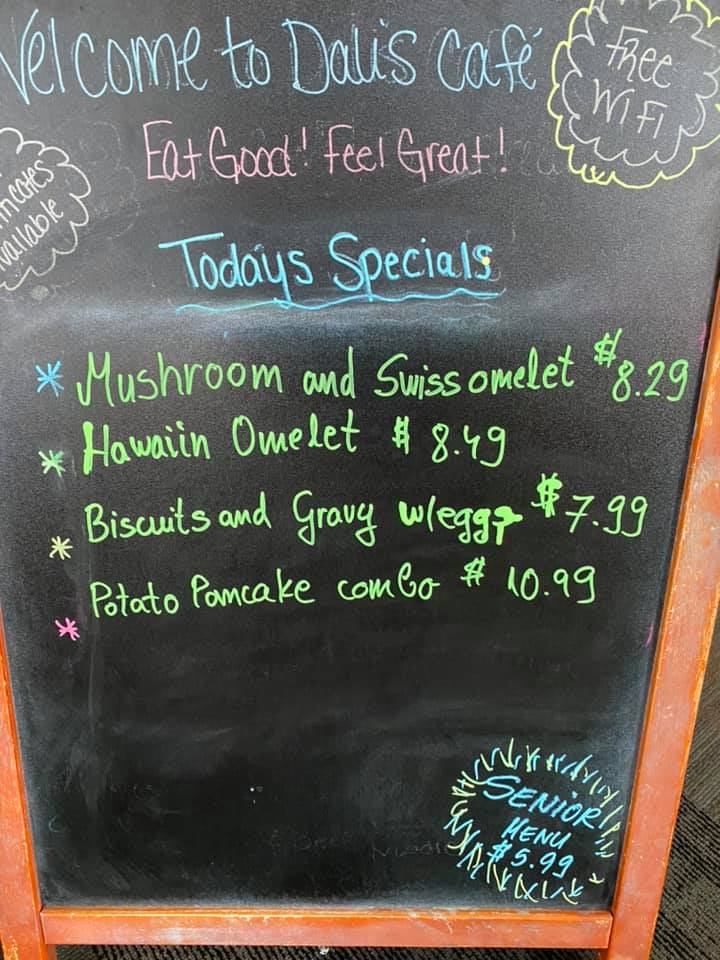 Welcome to Dali's Café
Free
WiFi
Eat Good! Feel Great!
Available
Todays Specials
* Mushroom and Swiss omelet $8.29
* Hawaiin Omelet $ 8.49
* Biscuits and Gravy w/eggs $7.99
* Potato Pancake combo $ 10.99
SENIOR
MENU
$5.99